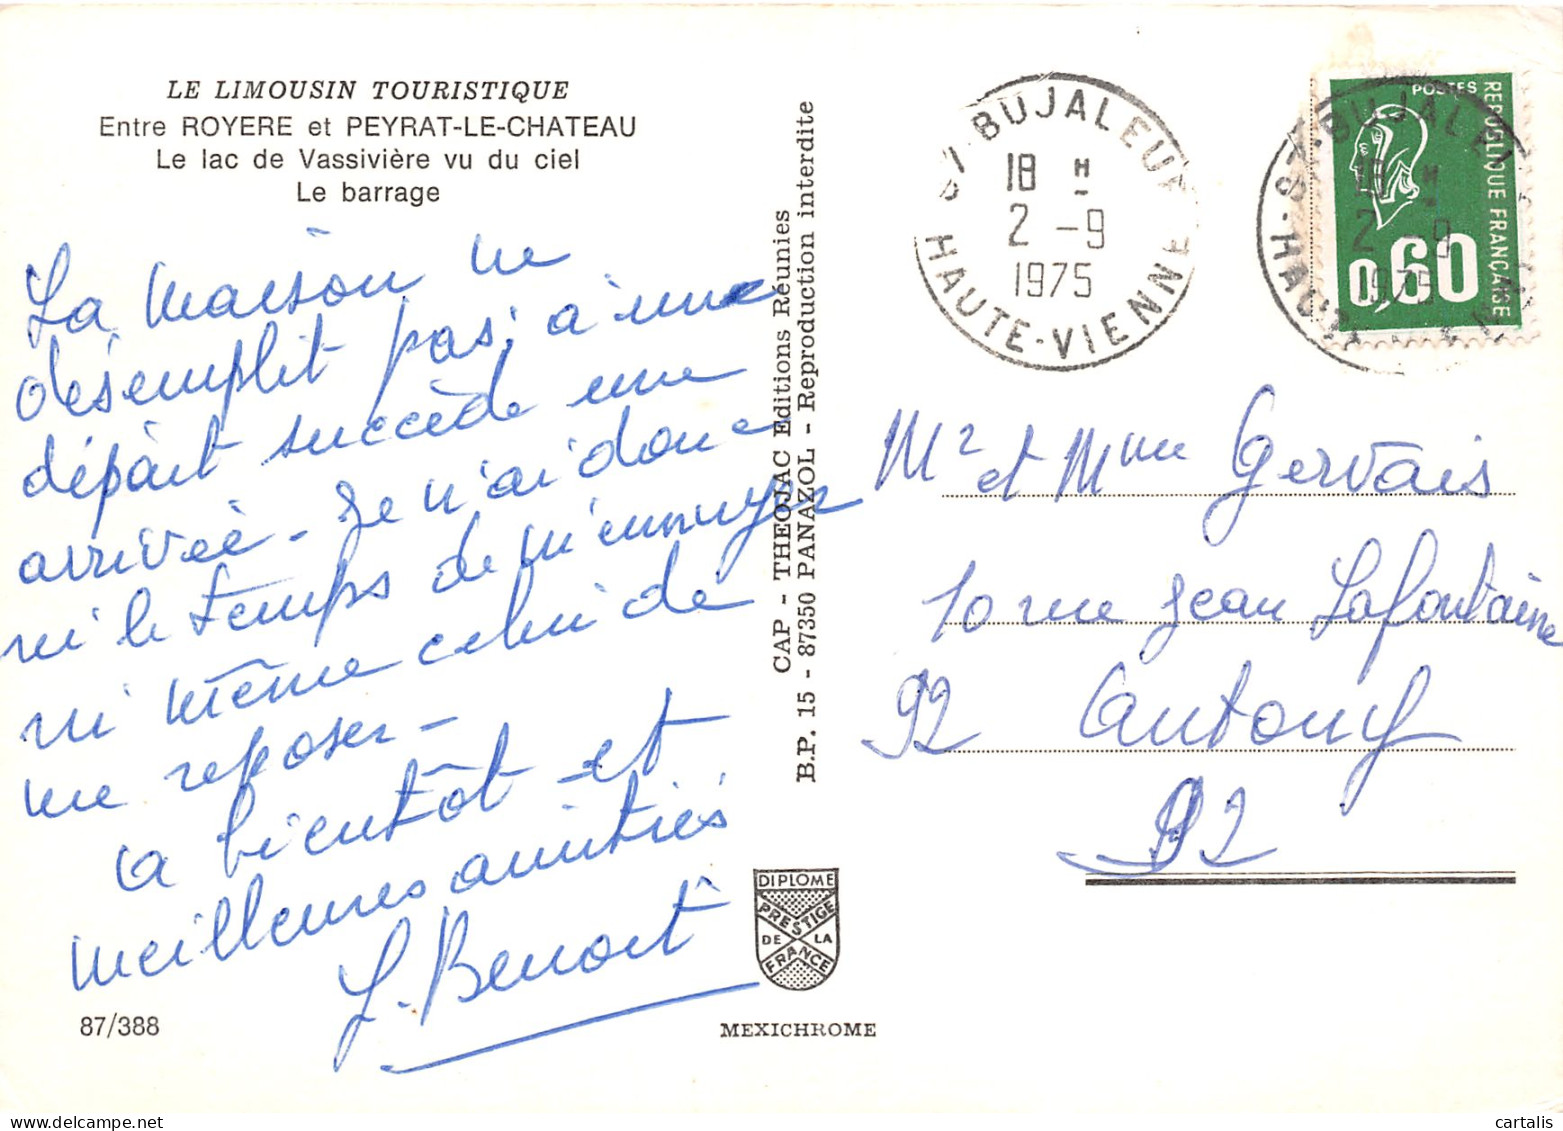 LE LIMOUSIN TOURISTIQUE
Entre ROYERE et PEYRAT-LE-CHATEAU
Le lac de Vassivière vu du ciel
Le barrage
La maison ne
désemplit pas, à une
départ succède une
arrivée - Je n'ai donc
ni le temps de m'ennuyer
ni même celui de
me reposer -
a bientôt et
meilleures amitiés
J. Benoit
87/388
CAP - THEOJAC Editions Réunies
B.P. 15 - 87350 PANAZOL - Reproduction interdite
DIPLOME
PRESTIGE
DE LA
FRANCE
MEXICHROME
87 BUJALEUF
18 H
2 -9
1975
HAUTE-VIENNE
87 BUJALEUF
18 H
2 -9
1975
HAUTE-VIENNE
POSTES
REPUBLIQUE FRANÇAISE
0,60
Mr et Mme Gervais
10 rue Jean Lafontaine
92 Antony
92
cartalis